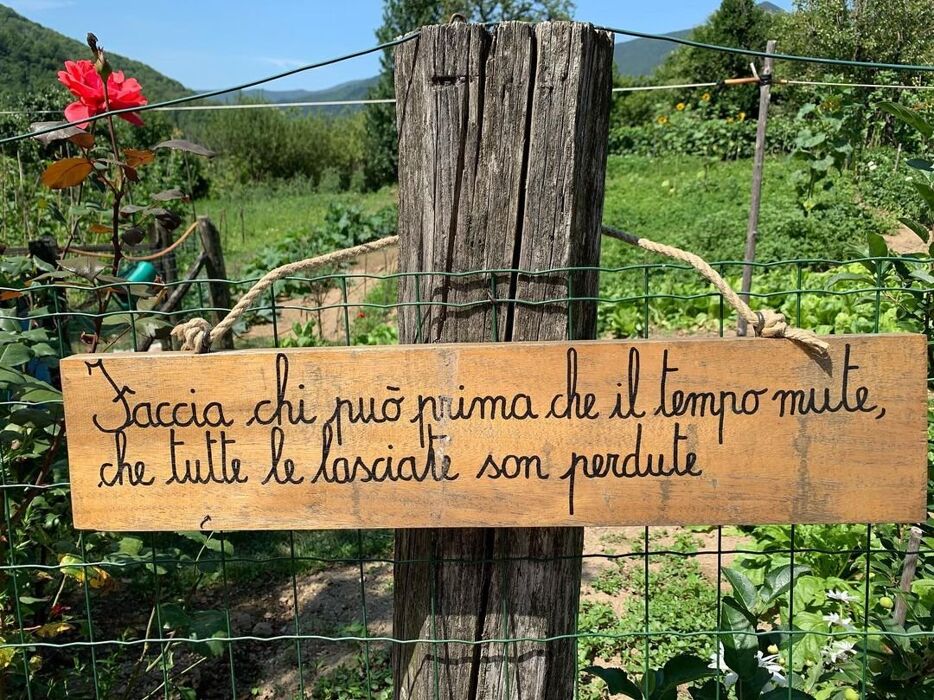 Faccia chi può prima che il tempo mute,
che tutte le lasciate son perdute